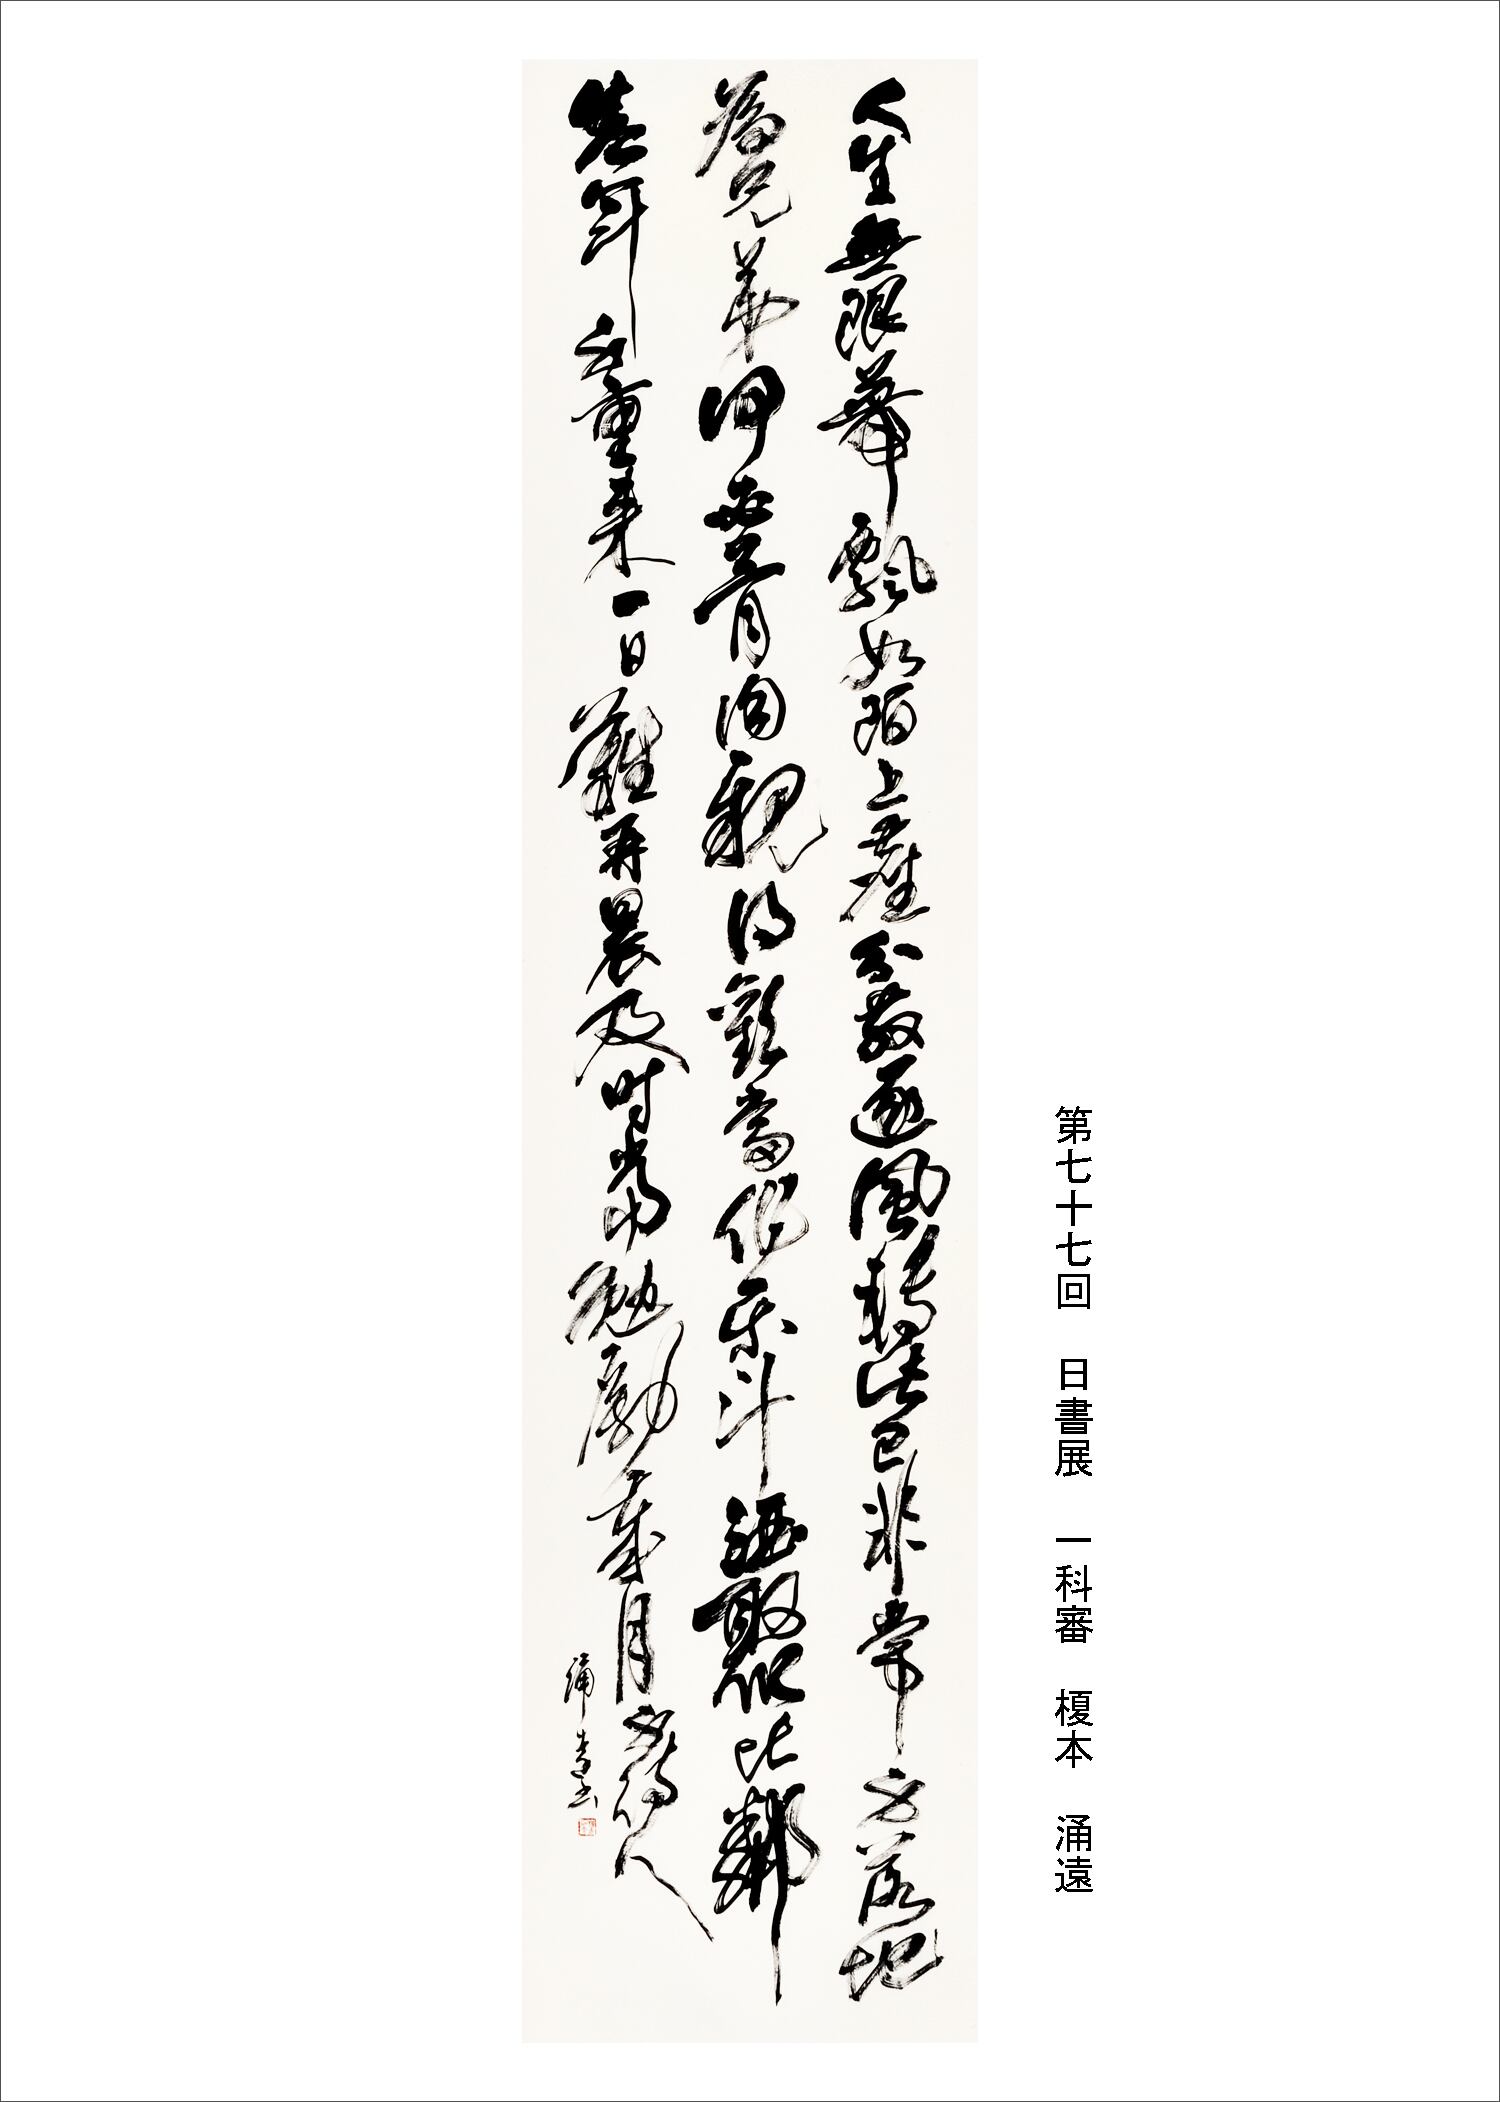 第七十七回　日書展　一科審　榎本　涌遠
人生無根蔕飄如陌上塵分散逐風轉此已非常身落地
為兄弟何必骨肉親得歡當作樂斗酒聚比鄰
盛年不重来一日難再晨及時當勉勵歳月不待人
涌遠書